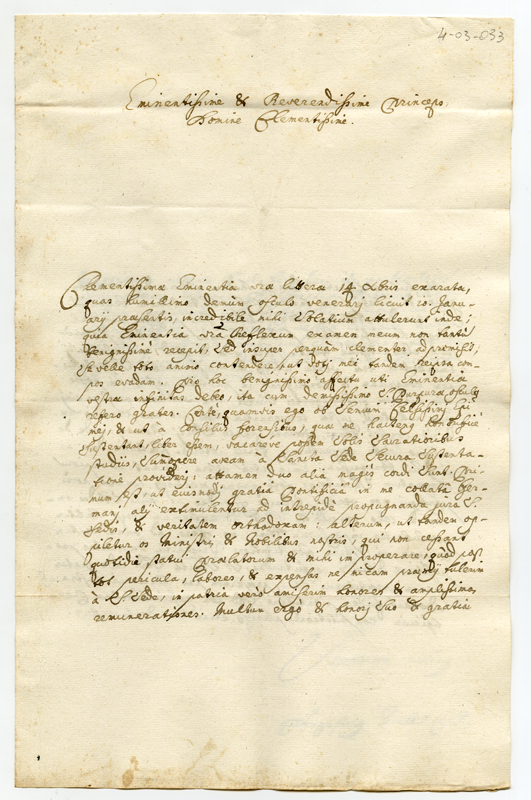 4-03-033
Eminentissime & Reverendissime Princeps.
Domine Clementissime.
Clementissimæ Eminentiæ vræ litteræ 14 Xbris exaratæ,
quas humillimo demum osculo venerarj licuit 10. Janu-
arij præsentis, incredibile mihi solatium attulerunt inde;
quia Eminentia vra examen meum non tantū
benignissimè recepit, sed insuper perquàm clementer
se velle toto animo contendere, ut voti mei tandem com-
pos evadam. Pro hoc benignissimo affectu uti Eminentiæ
vestræ infinitas debeo, ita cum demississimo S. Purpuræ osculo
refero grates. Certè quamvis ego ob Celsissimi
mej, & ut à forensibus, quæ me
sustentant, liber essem, vacareve possem solis
studiis, summopere aveam à Sancta Sede sustenta-
tione providerj: attamen duo alia magis cordi sunt. Pri-
mum est, ut ejusmodj gratiâ Pontificiâ in me collatâ Ger-
manj alij exstimulentur ad intrepidè propugnanda jura S.
Sedis, & veritatem orthodoxam: alterum, ut tandem op-
piletur os Ministris & Nobilibus nostris, qui non cessant
quotidie statui Prælatorum & mihi improperare, quòd post
tot pericula, labores, & expensas ne micam præmij tulerim
à S. Sede, in patria verò amiserim honores & amplissimas
remunerationes. Multum ergo & honorj suo & gratiæ